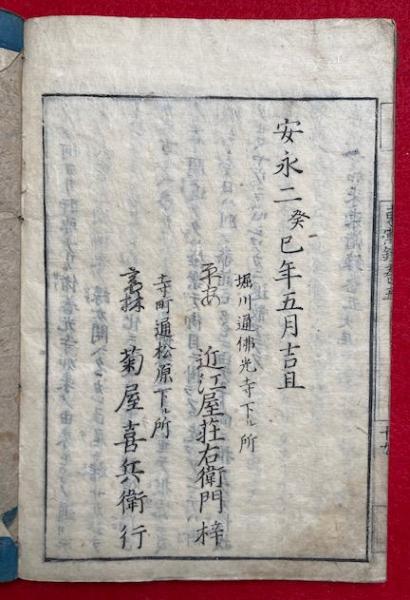 安永二癸巳年五月吉旦
堀川通佛光寺下ル所
平安 近江屋荘右衛門梓
寺町通松原下ル所
書林 菊屋喜兵衛行